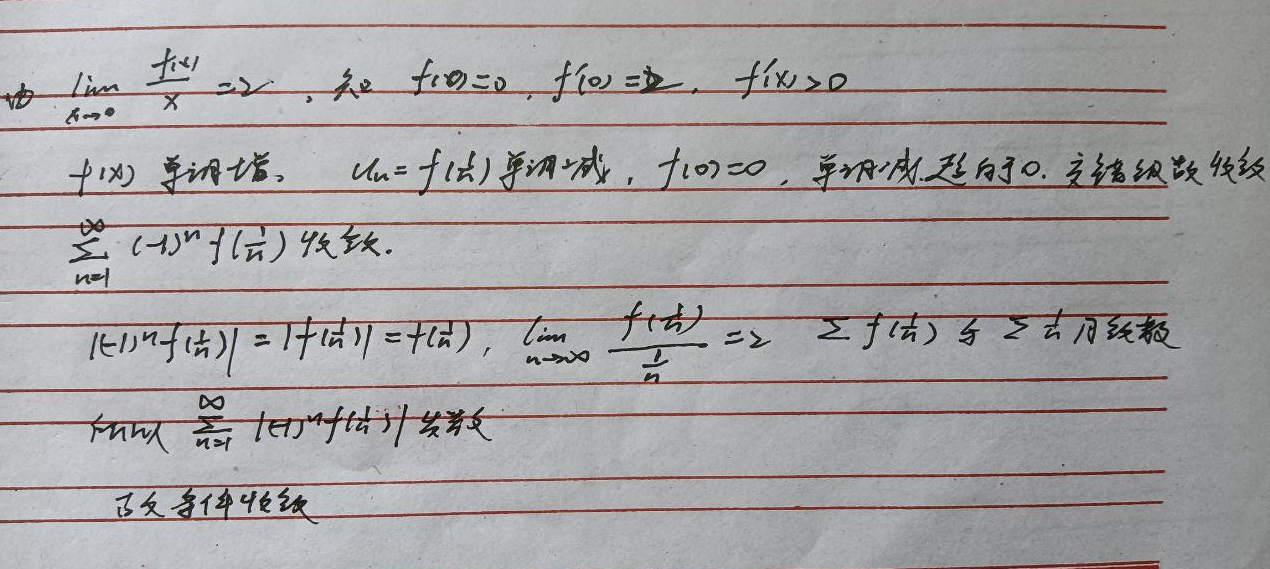 由 lim_{x→0} f(x)/x = 2, 知 f(0)=0, f'(0)=2, f'(x)>0
f(x) 单调增. u_n = f(1/n) 单调减, f(0)=0, 单调减.趋向于0. 交错级数收敛
∑_{n=1}^{∞} (-1)^n f(1/n) 收敛.
|(-1)^n f(1/n)| = |f(1/n)| = f(1/n), lim_{n→∞} f(1/n)/(1/n) = 2 ∑ f(1/n) 与 ∑ 1/n 同敛散
所以 ∑_{n=1}^{∞} |(-1)^n f(1/n)| 发散
故条件收敛